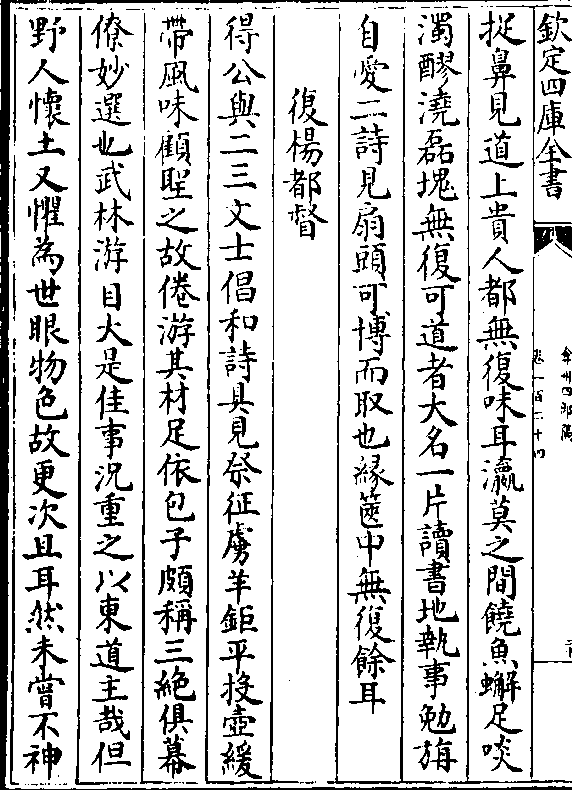 欽定四庫全書
捉鼻見道上貴人都無復味耳瀛莫之間饒魚蠏足啖
濁醪澆磊塊無復可道者大名一片讀書地執事勉旃
自愛二詩見扇頭可博而取也緣篋中無復餘耳
復楊都督
得公與二三文士倡和詩具見祭征虜羊鉅平投壺緩
帶風味顧聖之故倦游其材足依包子頗稱三絶俱幕
僚妙選也武林游目大是佳事況重之以東道主哉但
野人懷土又懼為世眼物色故更次且耳然未嘗不神